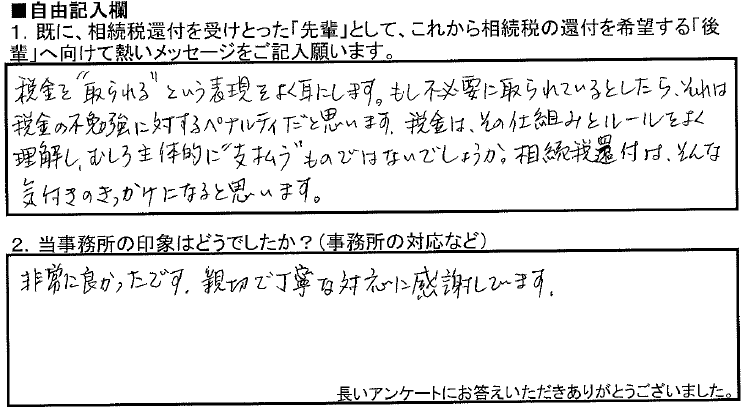 ■自由記入欄
1. 既に、相続税還付を受けとった「先輩」として、これから相続税の還付を希望する「後
輩」へ向けて熱いメッセージをご記入願います。
税金を“取られる”という表現をよく耳にします。もし不必要に取られているとしたら、それは
税金の不勉強に対するペナルティだと思います. 税金は、その仕組みとルールをよく
理解し、むしろ主体的に“支払う”ものではないでしょうか。相続税還付は、そんな
気付きのきっかけになると思います。
2. 当事務所の印象はどうでしたか？（事務所の対応など）
非常に良かったです. 親切で丁寧な対応に感謝しています.
長いアンケートにお答えいただきありがとうございました。